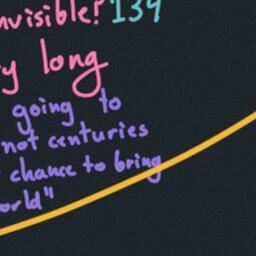 nvisible? 139
y long
going to
not centuries
chance to bring
orld"